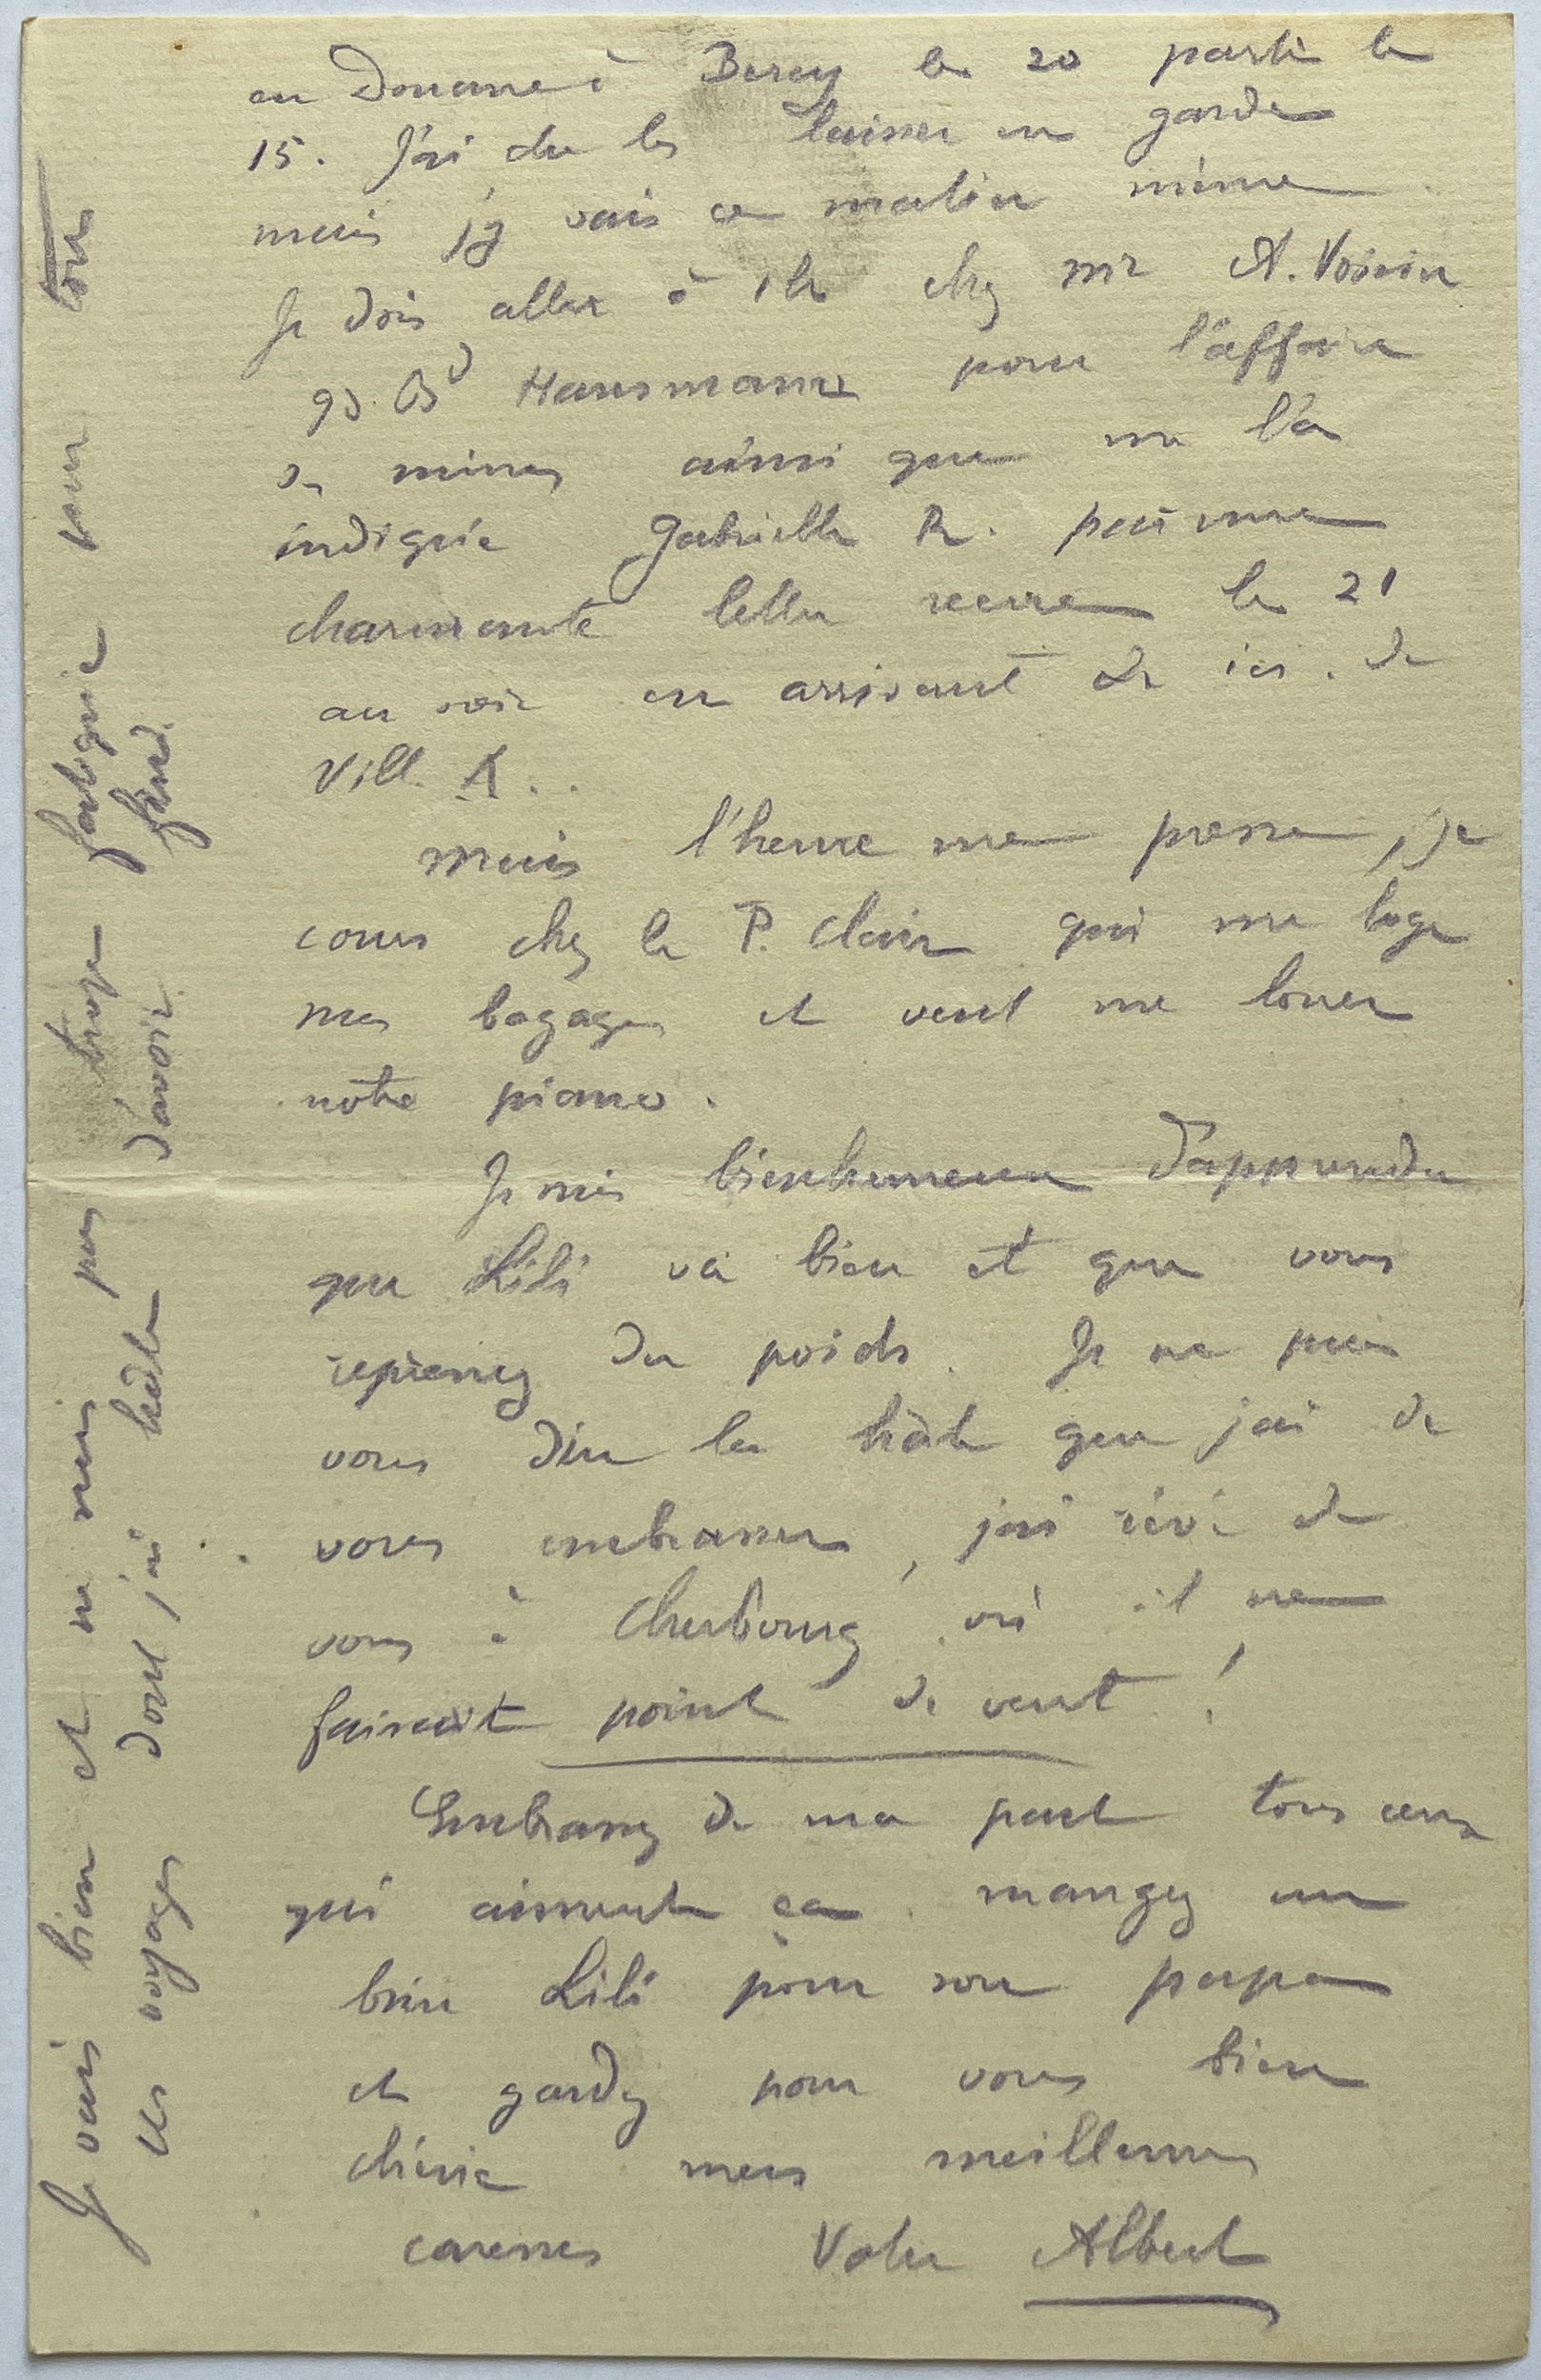 en Douane à Bercy le 20 parti le
15. J'ai du les laisser en garde
mais j'y vais ce matin même
Je dois aller à 1h chez Mr A. Voisin
93. Bd Hausmann pour l'affaire
de mines ainsi que me l'a
indiquée Gabrielle R. par une
charmante lettre reçue le 21
au soir en arrivant de ici. de
Vill. A..
Mais l'heure me presse, je
cours chez le P. Clair qui me loge
mes bagages et veut me louer
nôtre piano.
Je suis bienheureux d'apprendre
que Lili va bien et que vous
reprenez du poids. Je ne puis
vous dire la hâte que j'ai de
vous embrasser, j'ai rêvé de
vous à Cherbourg où il ne
faisait point de vent !
Embrassez de ma part tous ceux
qui aiment ça. mangez un
brin Lili pour son papa
et gardez pour vous bien
chérie mes meilleures
caresses Votre Albert
Je vais bien et ne suis pas trop fatigué
les voyages dont j'ai hâte d'avoir fini.